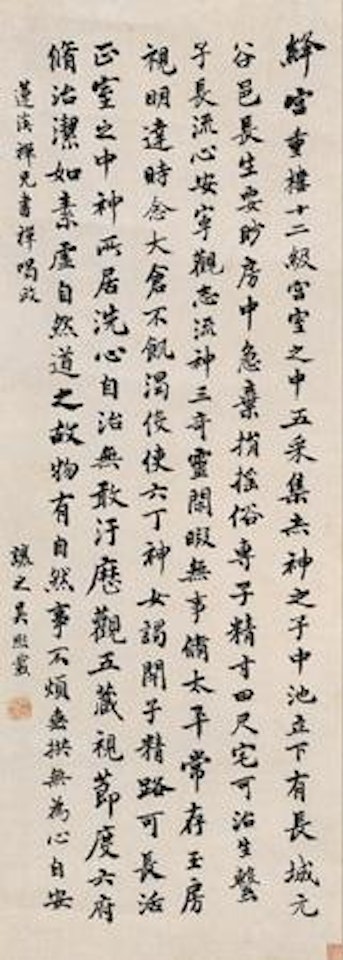 絳宮重樓十二級宮室之中五采集赤神之子中池立下有長城元
谷邑長生要眇房中急棄捐搖俗專子精寸田尺宅可治生繫
子長流心安寧觀志流神三奇靈閒暇無事脩太平常存玉房
視明達時念大倉不飢渴役使六丁神女謁閉子精路可長活
正室之中神所居洗心自治無敢汙歷觀五藏視節度六府
脩治潔如素虛自然道之故物有自然事不煩垂拱無為心自安
蓮溪禪兄書禪喝政
讓之吳熙載